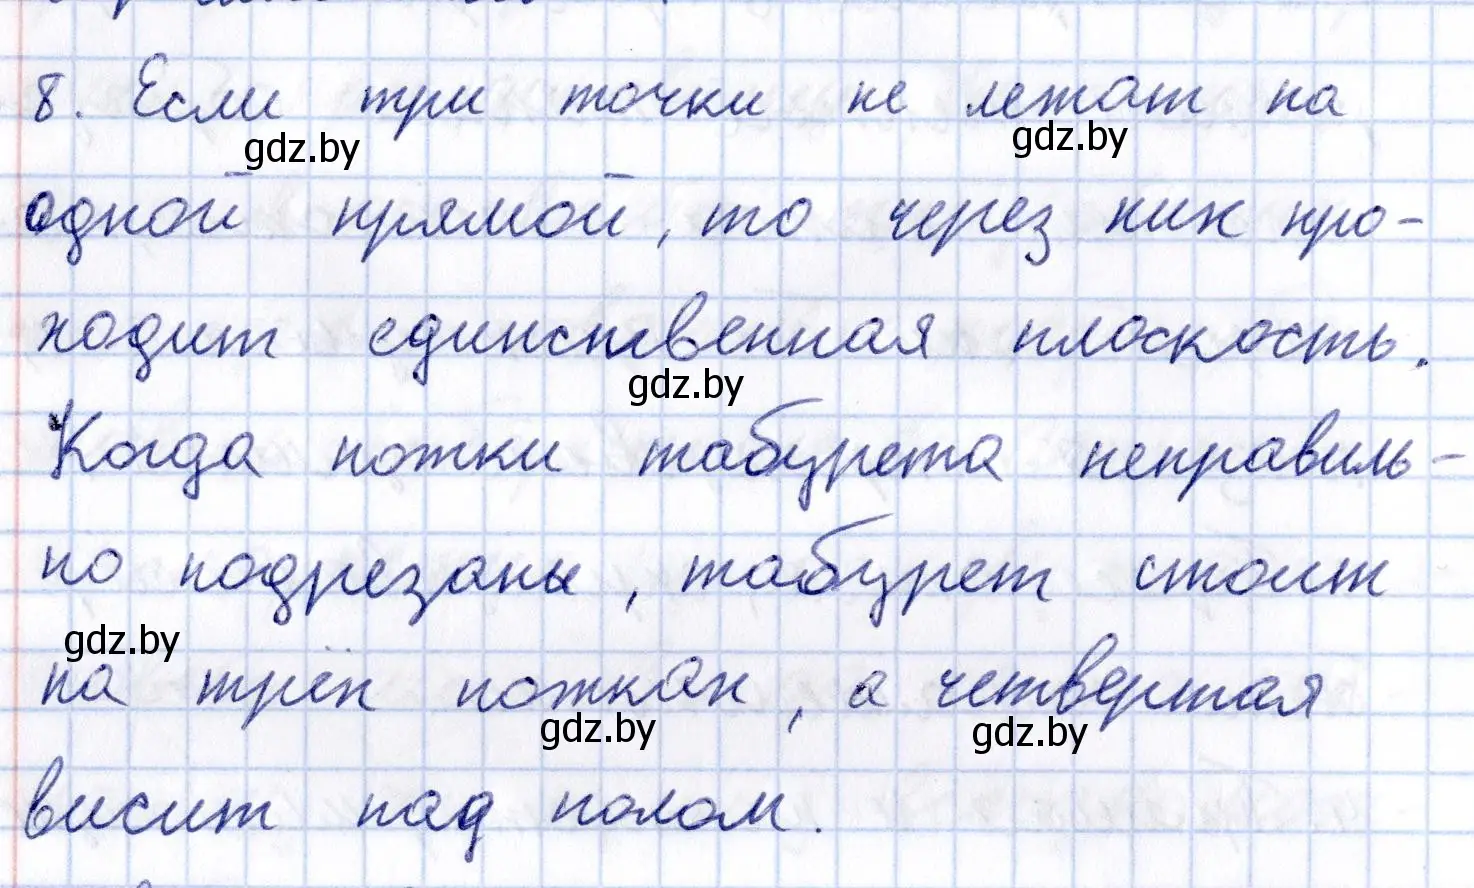 8. Если три точки не лежат на
gdz.by gdz.by
одной прямой, то через них про-
ходит единственная плоскость.
gdz.by
Когда ножки табурета неправиль-
но подрезаны, табурет стоит
gdz.by
на трёх ножках, а четвертая
gdz.by gdz.by
висит над полом.